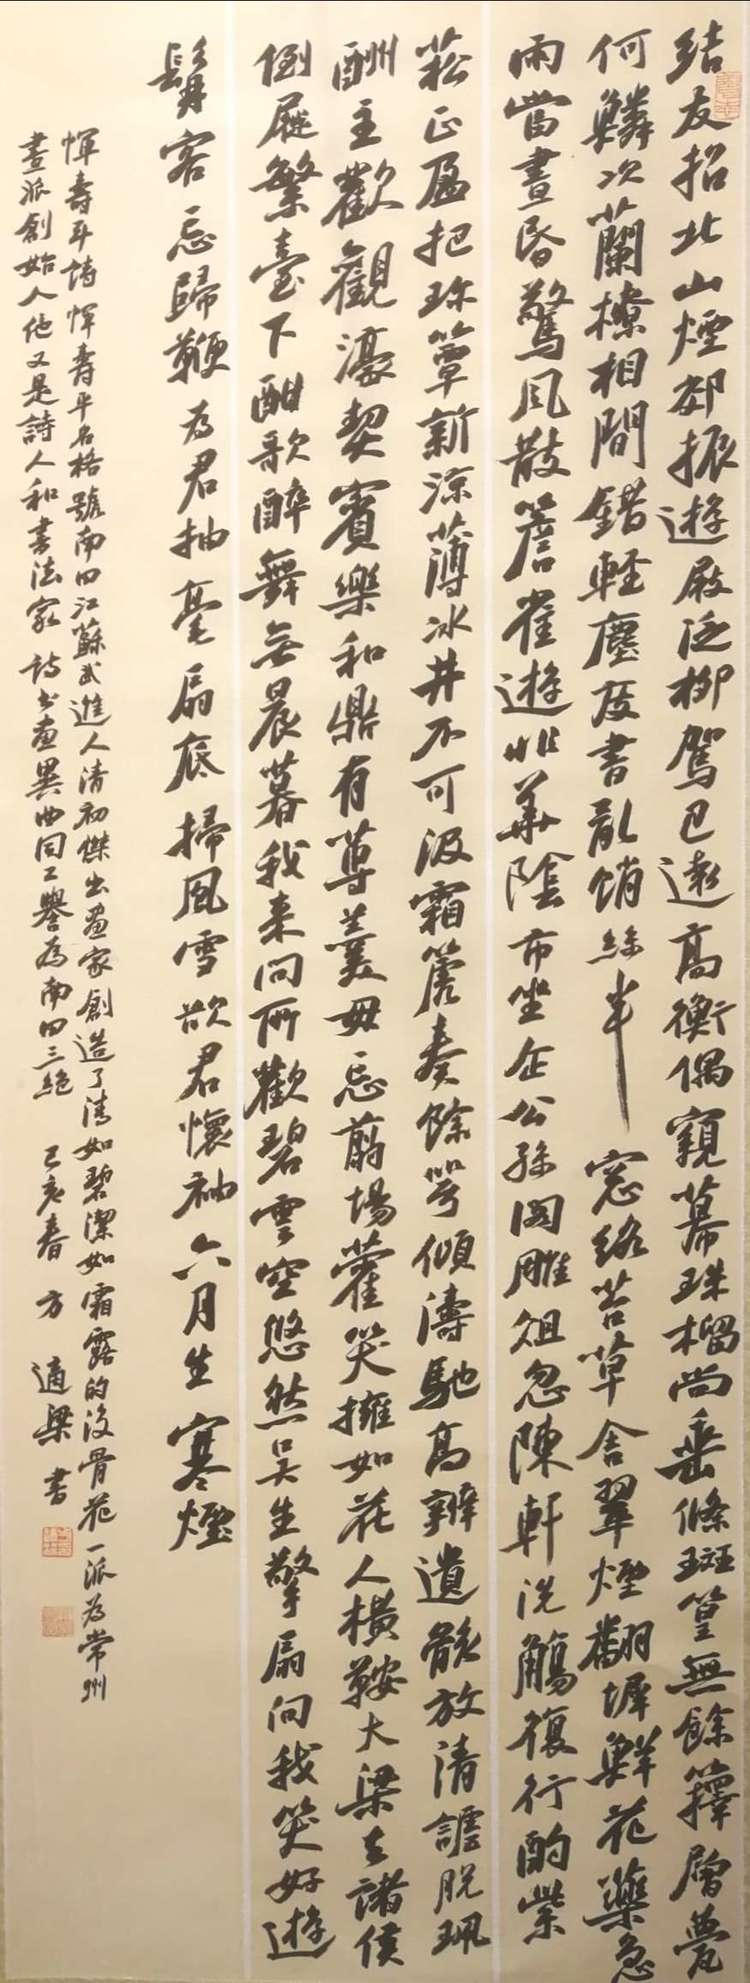 結友招北山煙郊振遊屐泛柳駕已遠高衡偶窺幕珠榴尚垂條斑篁無餘籜層甍
何鱗次蘭橑相間錯輕塵度書亂蛸絲半窓絡苔草含翠煙翻墀鮮花藥急
雨當晝昏驚風散簷雀遊非華陰市坐企公孫閣雕俎忽陳軒洗觴復行酌紫
菘正盈把珍簟新涼薄冰井不可汲霜篪奏餘咢傾濤馳高辨遺骸放清謔脫珮
酬主歡觀濠契賓樂和鼎有蓴羹毋忘翦場藿笑擁如花人橫鞍大梁去諸侯
倒屣繁臺下酣歌醉舞無晨暮我來問所歡碧雲空悠然吳生擎扇向我笑好遊
賓客忘歸鞭為君抽毫扇底掃風雪欲君懷袖六月生寒煙
惲壽平詩惲壽平名格號南田江蘇武進人清初傑出畫家創造了清如碧潔如霜露的沒骨花一派為常州
畫派創始人他又是詩人和書法家詩書畫異曲同工譽為南田三絕 己亥春 方適梁書